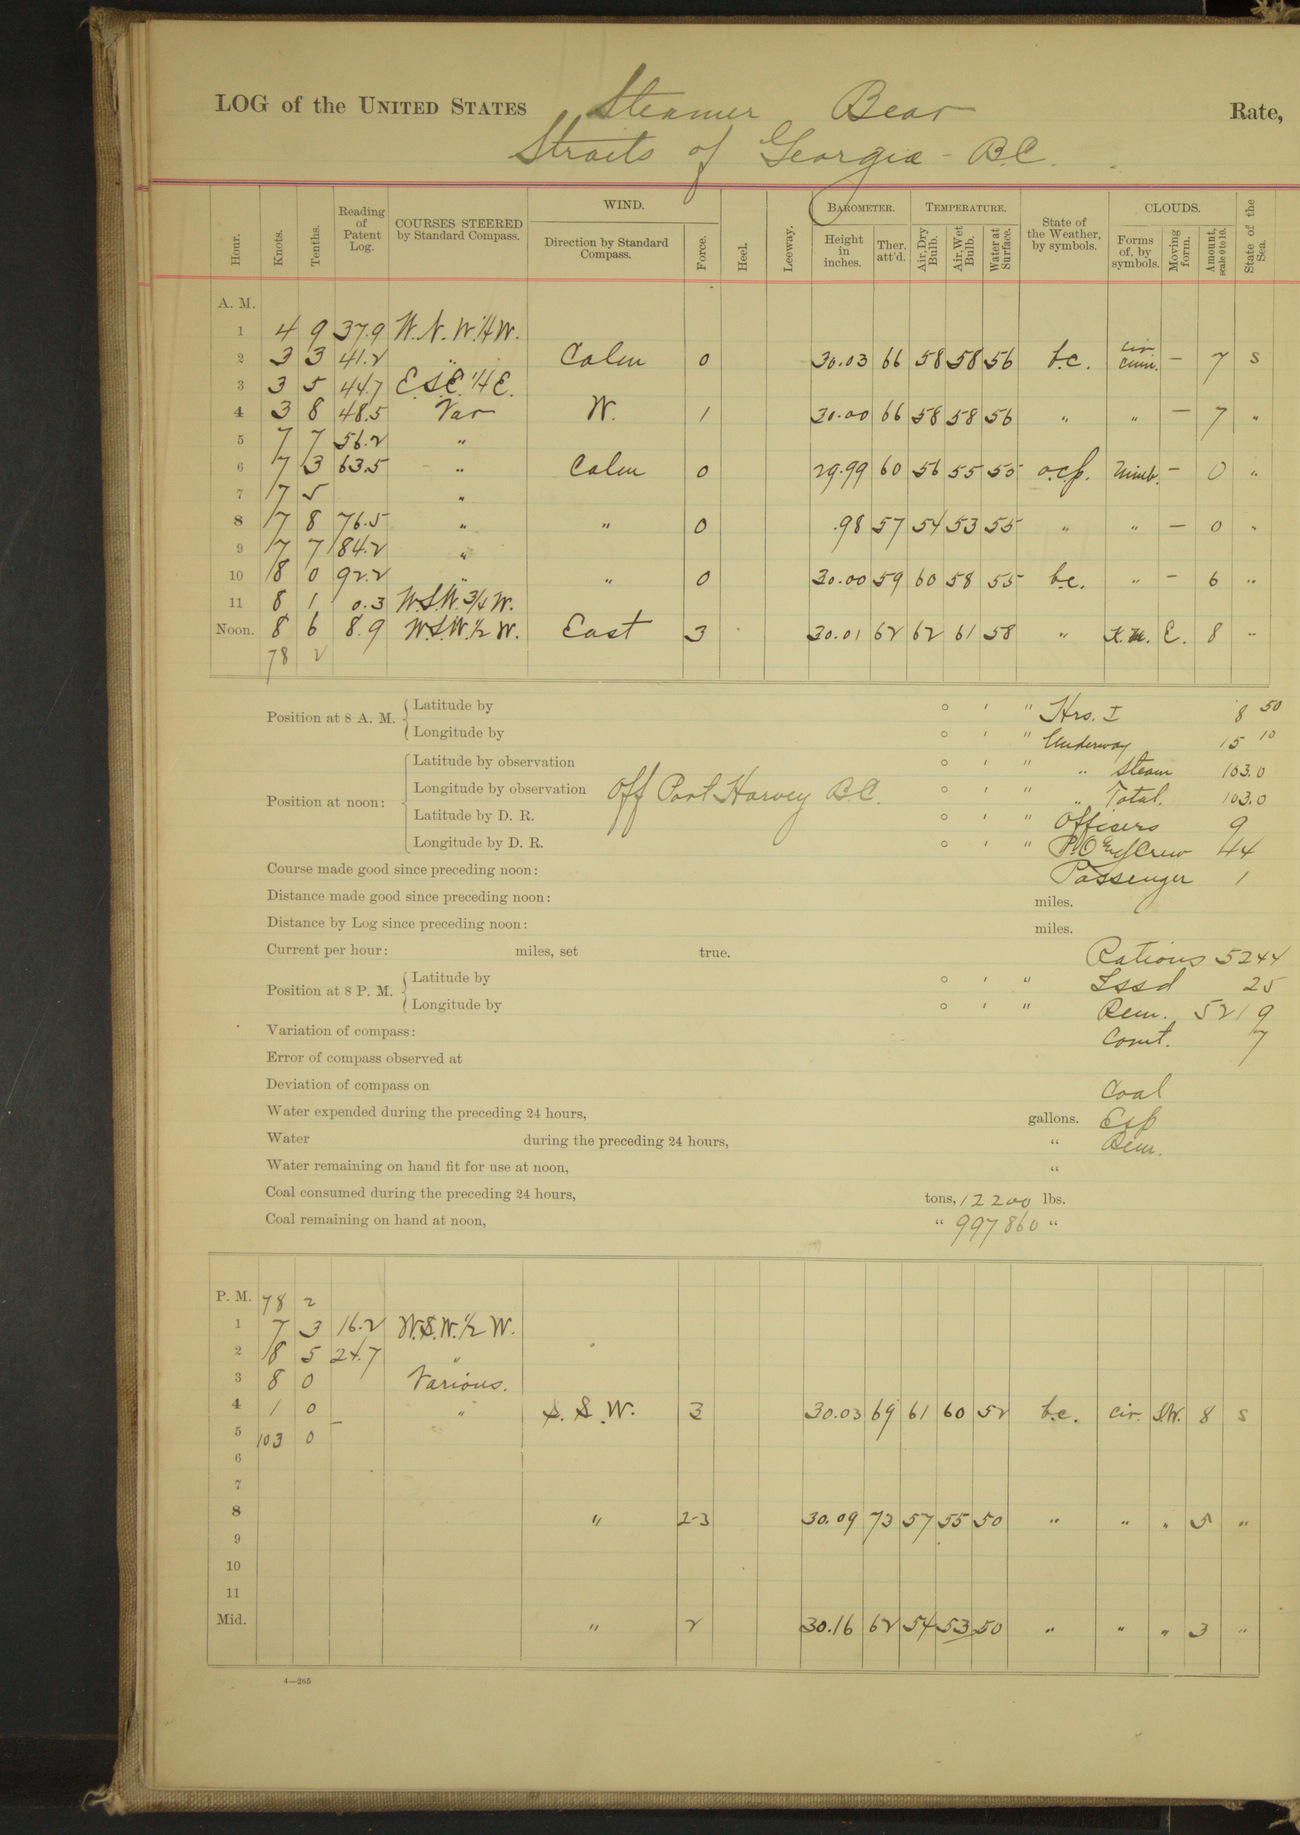 LOG of the UNITED STATES Steamer Bear Rate,
Straits of Georgia - B.C.
Hour. Knots. Tenths. Reading of Patent Log. COURSES STEERED by Standard Compass. WIND. Direction by Standard Compass. Force. Heel. Leeway. BAROMETER. Height in inches. Ther. att'd. TEMPERATURE. Air, Dry Bulb. Air, Wet Bulb. Water at Surface. State of the Weather, by symbols. CLOUDS. Forms of, by symbols. Moving form. Amount, scale 0 to 10. State of the Sea.
A. M.
1 4 9 37.9 W.N.W.1/4W.
2 3 3 41.2 " Calm 0 30.03 66 58 58 56 b.c. cir cum. — 7 S
3 3 5 44.7 E.S.E.1/4E.
4 3 8 48.5 Var W. 1 30.00 66 58 58 56 " " — 7 "
5 7 7 56.2 "
6 7 3 63.5 " Calm 0 29.99 60 56 55 55 o.c.p. Nimb. — 0 "
7 7 5 "
8 7 8 76.5 " " 0 .98 57 54 53 55 " " — 0 "
9 7 7 84.2 "
10 8 0 92.2 " " 0 30.00 59 60 58 55 b.c. " — 6 "
11 8 1 0.3 W.S.W.3/4W.
Noon. 8 6 8.9 W.S.W.1/2W. East 3 30.01 62 62 61 58 " E. 8 "
78 2
Position at 8 A. M. Latitude by ° ' " Hrs. I 8 50
Longitude by ° ' " Underway 15 10
Position at noon: Latitude by observation ° ' " " Steam 103.0
Longitude by observation Off Port Harvey B.C. ° ' " " Total. 103.0
Latitude by D. R. ° ' " Officers 9
Longitude by D. R. ° ' " P.O. & Crew 44
Course made good since preceding noon: Passenger 1
Distance made good since preceding noon: miles.
Distance by Log since preceding noon: miles.
Current per hour: miles, set true. Rations 5244
Position at 8 P. M. Latitude by ° ' " Issd 25
Longitude by ° ' " Rem. 5219
Variation of compass: Comt. 7
Error of compass observed at
Deviation of compass on Coal
Water expended during the preceding 24 hours, gallons. Exp
Water during the preceding 24 hours, " Rem.
Water remaining on hand fit for use at noon, "
Coal consumed during the preceding 24 hours, tons, 12200 lbs.
Coal remaining on hand at noon, " 997860 "
P. M. 78 2
1 7 3 16.2 W.S.W.1/2W.
2 8 5 24.7 "
3 8 0 Various.
4 1 0 — " S.S.W. 3 30.03 69 61 60 52 b.c. cir. S.W. 8 S
5 103 0
6
7
8 " 2-3 30.09 73 57 55 50 " " " 5 "
9
10
11
Mid. " 2 30.16 62 54 53 50 " " " 3 "
4—265